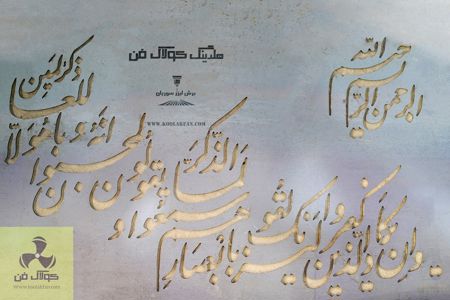 بسم الله الرحمن الرحیم
هلدینگ کولاک فن
برش لیزر
WWW.KOOLAKFAN.COM
وان یکاد الذین کفروا لیزلقونک بابصارهم
لما سمعوا الذکر و یقولون انه لمجنون
و ما هو الا ذکر للعالمین
کولاک فن
WWW.KOOLAKFAN.COM